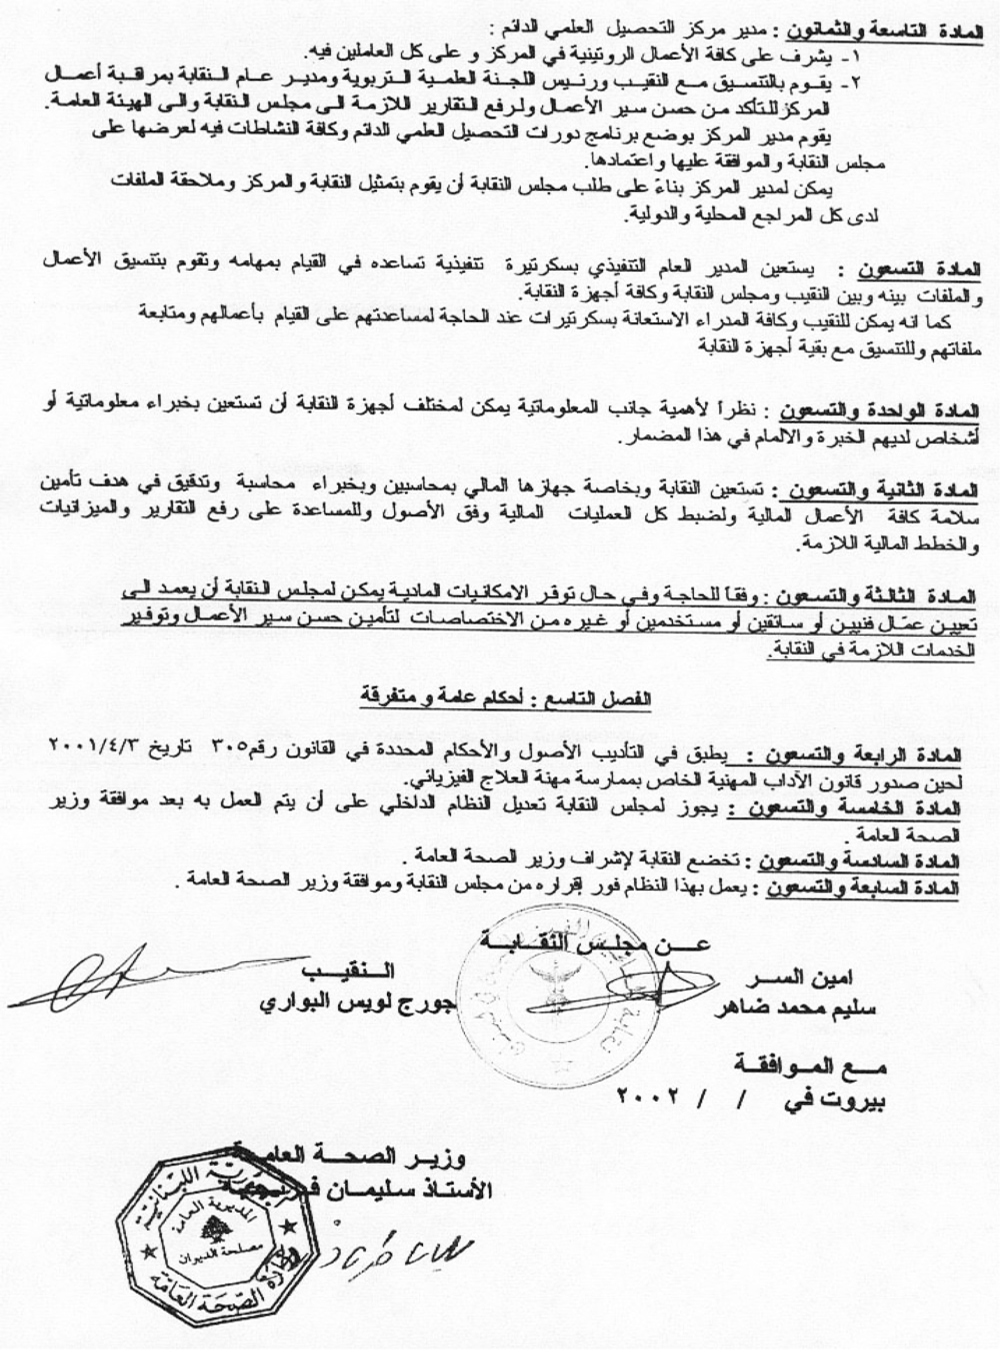 المادة التاسعة والثمانون : مدير مركز التحصيل العلمي الدائم :
١- يشرف على كافة الأعمال الروتينية في المركز و على كل العاملين فيه.
٢- يقوم بالتنسيق مع النقيب ورئيس اللجنة العلمية التربوية ومدير عام النقابة بمراقبة أعمال
المركز للتأكد من حسن سير الأعمال ولرفع التقارير اللازمة الى مجلس النقابة والى الهيئة العامة.
يقوم مدير المركز بوضع برنامج دورات التحصيل العلمي الدائم وكافة النشاطات فيه لعرضها على
مجلس النقابة والموافقة عليها واعتمادها.
يمكن لمدير المركز بناءً على طلب مجلس النقابة أن يقوم بتمثيل النقابة والمركز وملاحقة الملفات
لدى كل المراجع المحلية والدولية.
المادة التسعون : يستعين المدير العام التنفيذي بسكرتيرة تنفيذية تساعده في القيام بمهامه وتقوم بتنسيق الأعمال
والملفات بينه وبين النقيب ومجلس النقابة وكافة أجهزة النقابة.
كما انه يمكن للنقيب وكافة المدراء الاستعانة بسكرتيرات عند الحاجة لمساعدتهم على القيام بأعمالهم ومتابعة
ملفاتهم وللتنسيق مع بقية أجهزة النقابة
المادة الواحدة والتسعون : نظراً لأهمية جانب المعلوماتية يمكن لمختلف أجهزة النقابة أن تستعين بخبراء معلوماتية أو
أشخاص لديهم الخبرة والالمام في هذا المضمار.
المادة الثانية والتسعون : تستعين النقابة وبخاصة جهازها المالي بمحاسبين وبخبراء محاسبة وتدقيق في هدف تأمين
سلامة كافة الأعمال المالية ولضبط كل العمليات المالية وفق الأصول وللمساعدة على رفع التقارير والميزانيات
والخطط المالية اللازمة.
المادة الثالثة والتسعون : وفقاً للحاجة وفي حال توفر الامكانيات المادية يمكن لمجلس النقابة أن يعمد الى
تعيين عمّال فنيين أو سائقين أو مستخدمين أو غيره من الاختصاصات لتأمين حسن سير الأعمال وتوفير
الخدمات اللازمة في النقابة.
الفصل التاسع : أحكام عامة و متفرقة
المادة الرابعة والتسعون : يطبق في التأديب الأصول والأحكام المحددة في القانون رقم٣٠٥ تاريخ ٢٠٠١/٤/٣
لحين صدور قانون الآداب المهنية الخاص بممارسة مهنة العلاج الفيزيائي.
المادة الخامسة والتسعون : يجوز لمجلس النقابة تعديل النظام الداخلي على أن يتم العمل به بعد موافقة وزير
الصحة العامة .
المادة السادسة والتسعون : تخضع النقابة لإشراف وزير الصحة العامة .
المادة السابعة والتسعون : يعمل بهذا النظام فور إقراره من مجلس النقابة وموافقة وزير الصحة العامة .
عن مجلس النقابة
امين السر
النقيب
سليم محمد ضاهر
جورج لويس البواري
مع الموافقة
بيروت في / / ٢٠٠٢
وزير الصحة العامة
الأستاذ سليمان
الجمهورية اللبنانية
المديرية العامة
مصلحة الديوان
وزارة الصحة العامة